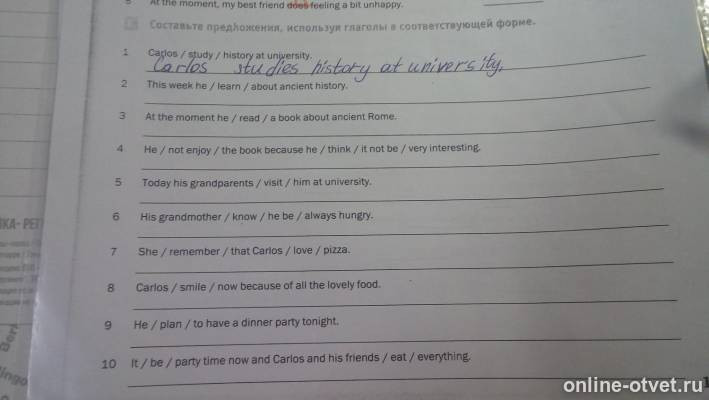 At the moment, my best friend does feeling a bit unhappy.
Составьте предложения, используя глаголы в соответствующей форме.
1 Carlos / study / history at university.
Carlos studies history at university.
2 This week he / learn / about ancient history.
3 At the moment he / read / a book about ancient Rome.
4 He / not enjoy / the book because he / think / it not be / very interesting.
5 Today his grandparents / visit / him at university.
6 His grandmother / know / he be / always hungry.
7 She / remember / that Carlos / love / pizza.
8 Carlos / smile / now because of all the lovely food.
9 He / plan / to have a dinner party tonight.
10 It / be / party time now and Carlos and his friends / eat / everything.
online-otvet.ru